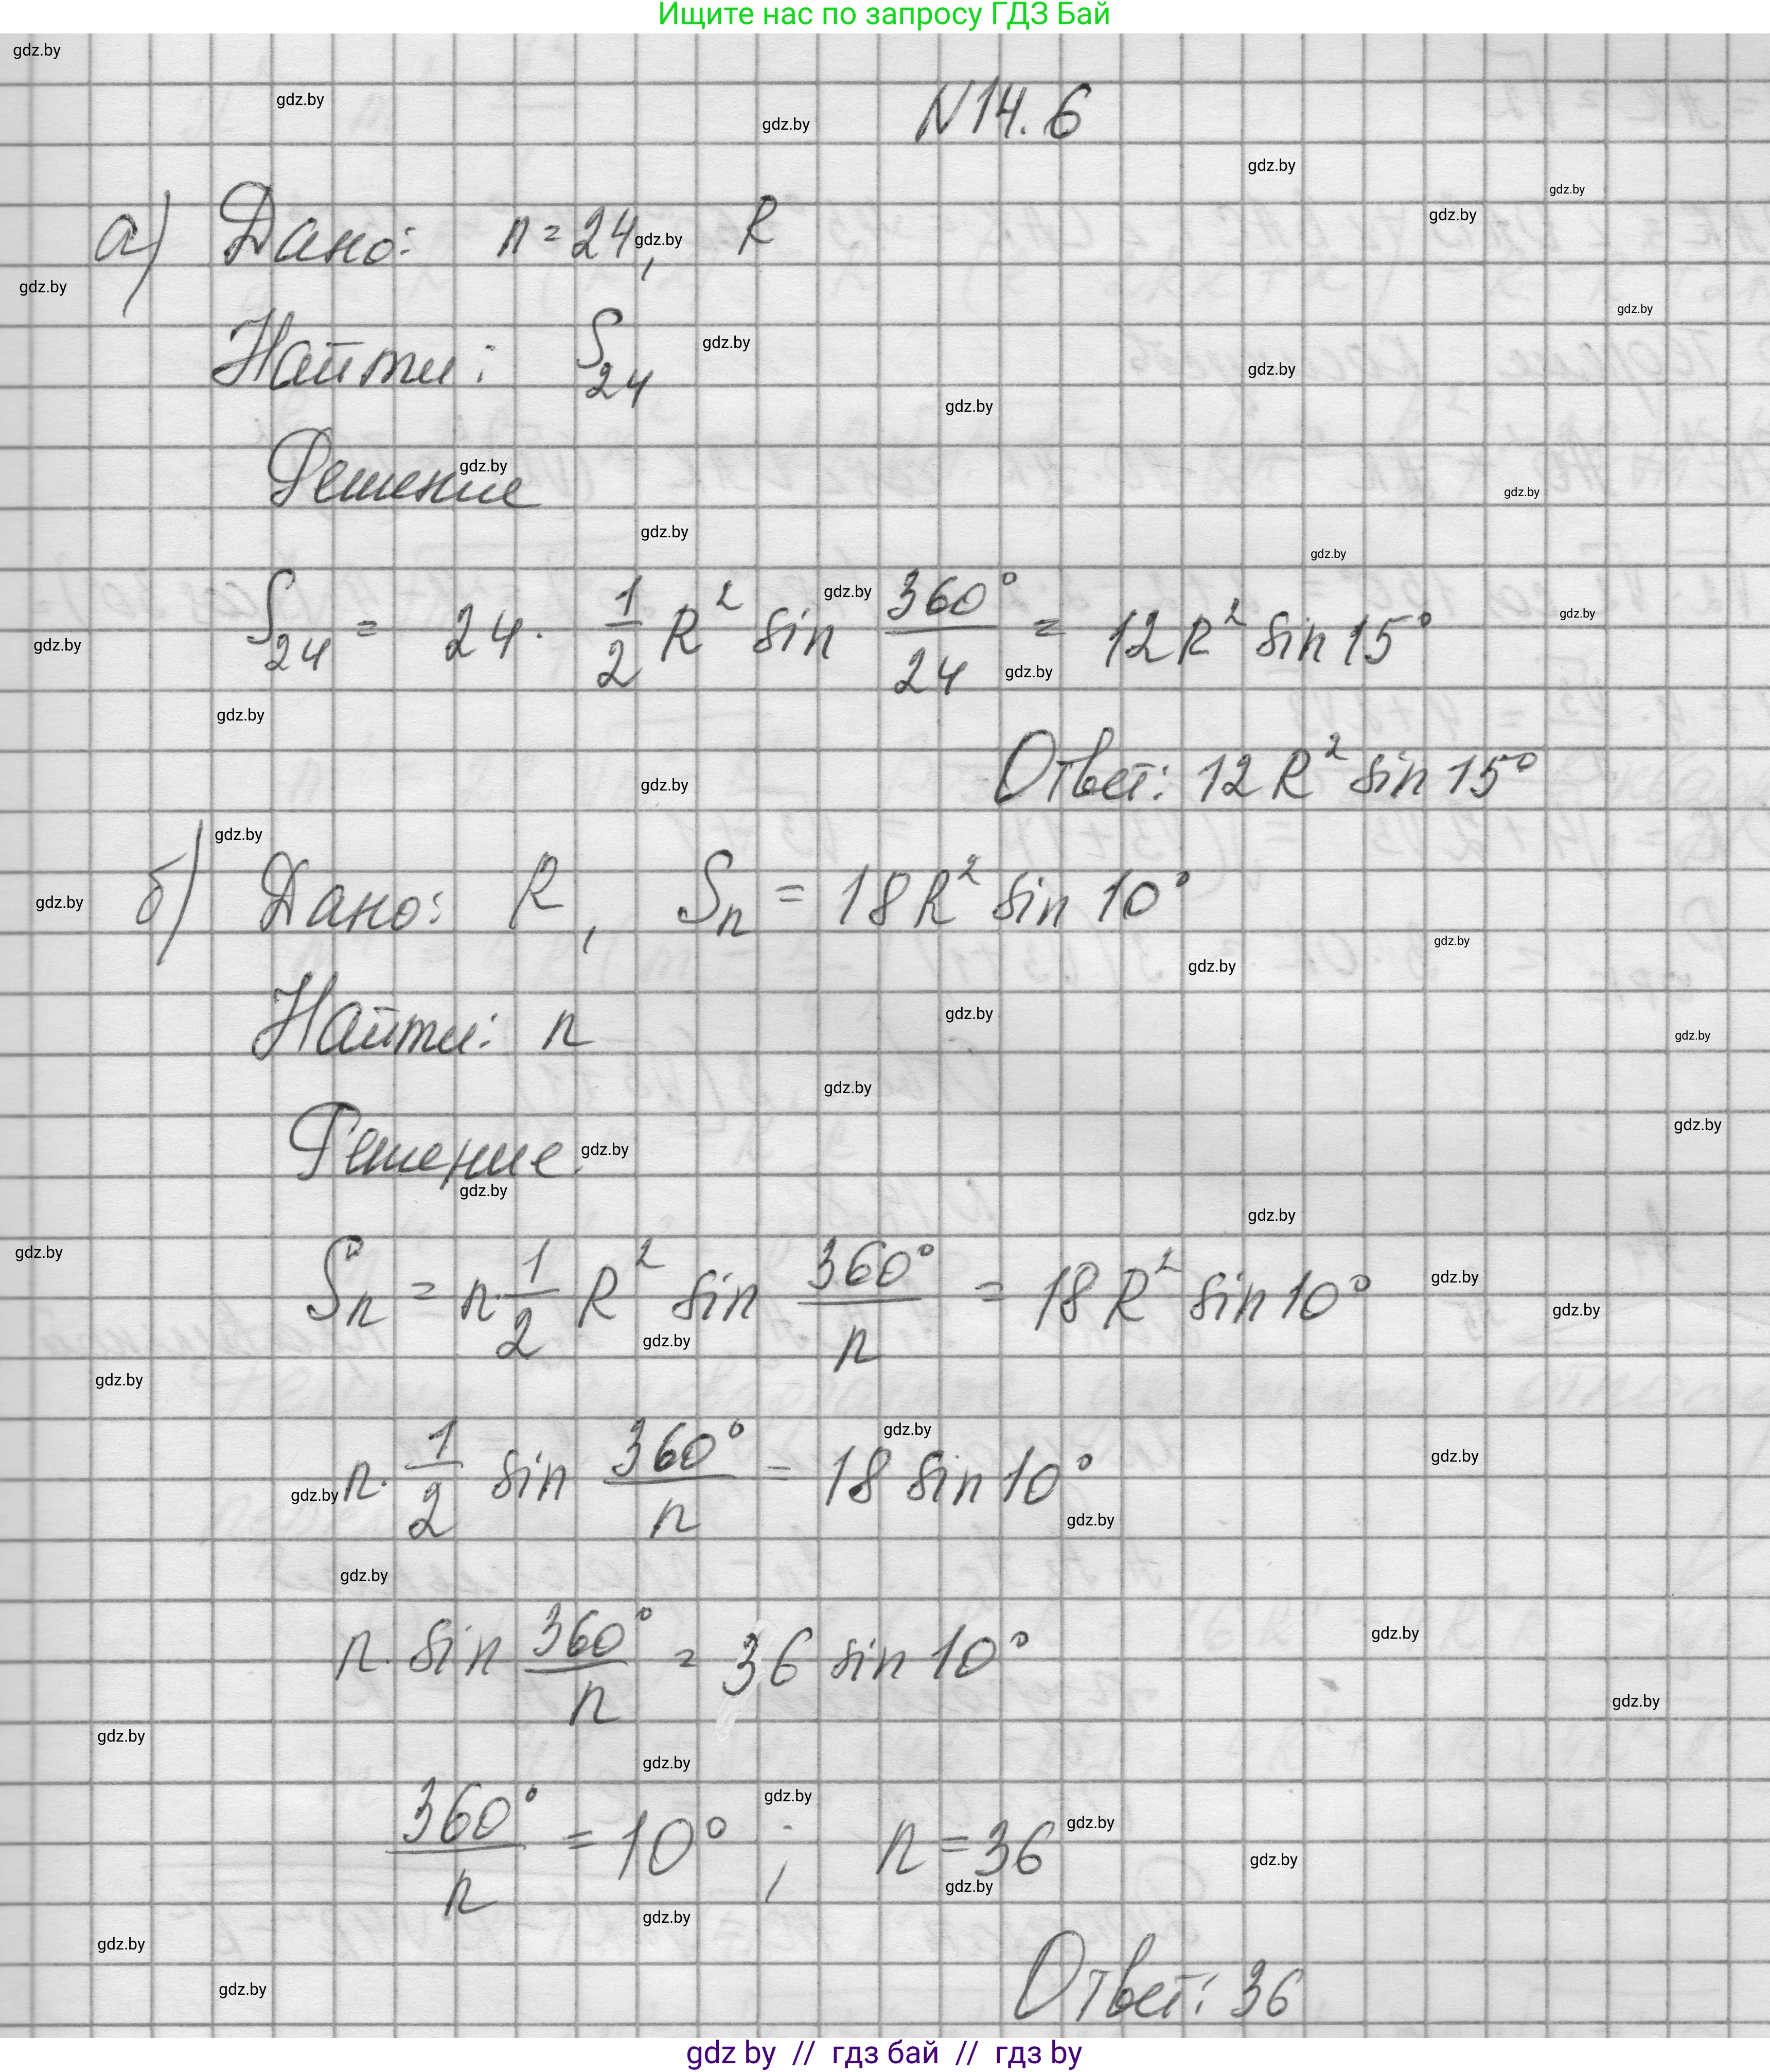 Ищите нас по запросу ГДЗ Бай
N14.6
а) Дано: n = 24, R
Найти: S₂₄
Решение
S₂₄ = 24 · 1/2 R² sin 360°/24 = 12R² sin 15°
Ответ: 12R² sin 15°
б) Дано: R, Sₙ = 18R² sin 10°
Найти: n
Решение.
Sₙ = n · 1/2 R² sin 360°/n = 18R² sin 10°
n · 1/2 sin 360°/n = 18 sin 10°
n · sin 360°/n = 36 sin 10°
360°/n = 10° ; n = 36
Ответ: 36
gdz by // гдз бай // гдз by